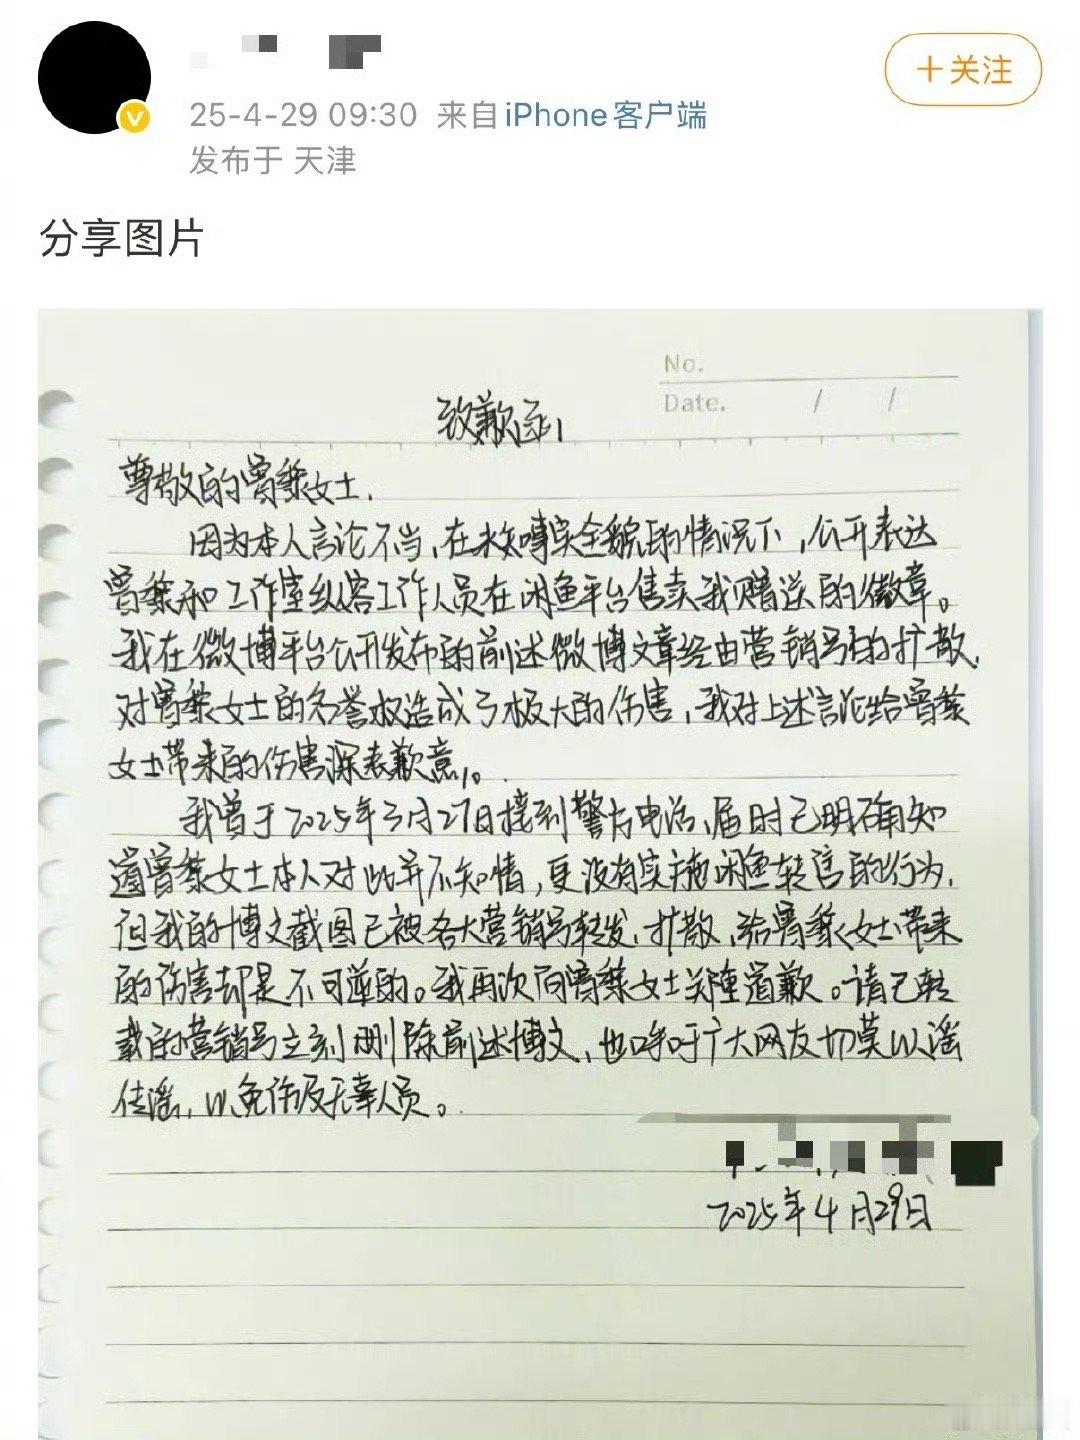 25-4-29 09:30 来自 iPhone客户端
发布于 天津
+关注
分享图片
No.
Date. / /
致歉函
尊敬的曾黎女士,
因为本人言论不当,在未知事实全貌的情况下,公开表达
曾黎和工作室纵容工作人员在闲鱼平台售卖我赠送的徽章。
我在微博平台公开发布的前述微博文章经由营销号的扩散,
对曾黎女士的名誉权造成了极大的伤害,我对上述言论给曾黎
女士带来的伤害深表歉意。
我曾于2025年3月27日接到警方电话,届时已明确知
道曾黎女士本人对此并不知情,更没有实施闲鱼转售的行为,
但我的博文截图已被各大营销号转发、扩散,给曾黎女士带来
的伤害却是不可逆的。我再次向曾黎女士郑重道歉。请已转
载的营销号立刻删除前述博文,也呼吁广大网友切莫以谣
传谣,以免伤及无辜人员。
2025年4月29日